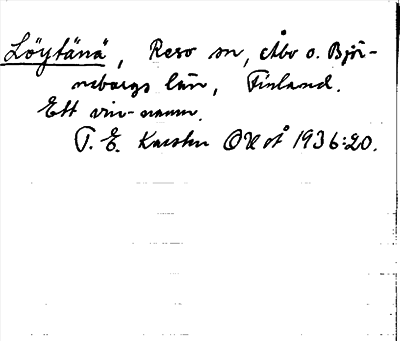 Löytänä, Reso sn, Åbo o. Björ-
neborgs län, Finland.
Ett vin-namn.
T. E. Karsten OUÅ 1936:20.